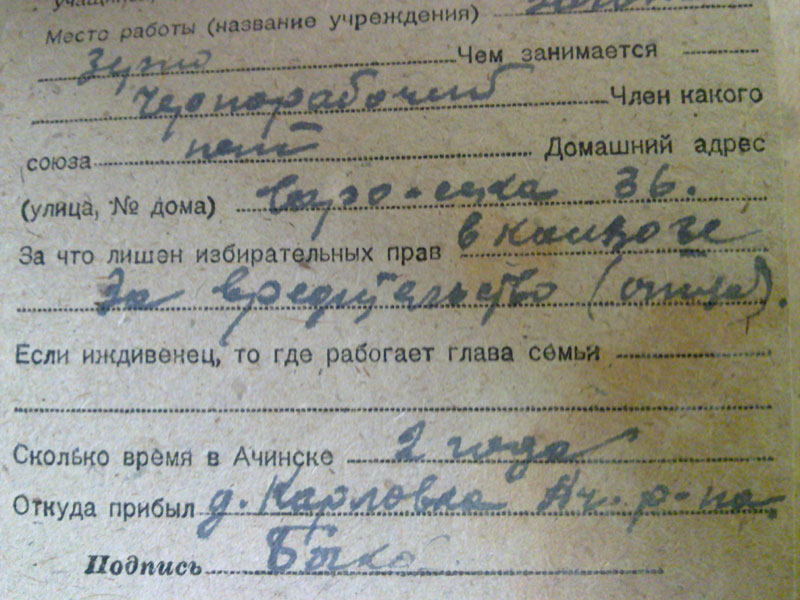 учащийся,
Место работы (название учреждения) Загот
зерно Чем занимается
Чернорабочий Член какого
союза нет Домашний адрес
(улица, № дома) 36.
За что лишен избирательных прав в колхозе
За вредительство (отца).
Если иждивенец, то где работает глава семьи
Сколько время в Ачинске 2 года
Откуда прибыл д. Карловка Ач. р-на.
Подпись Быко